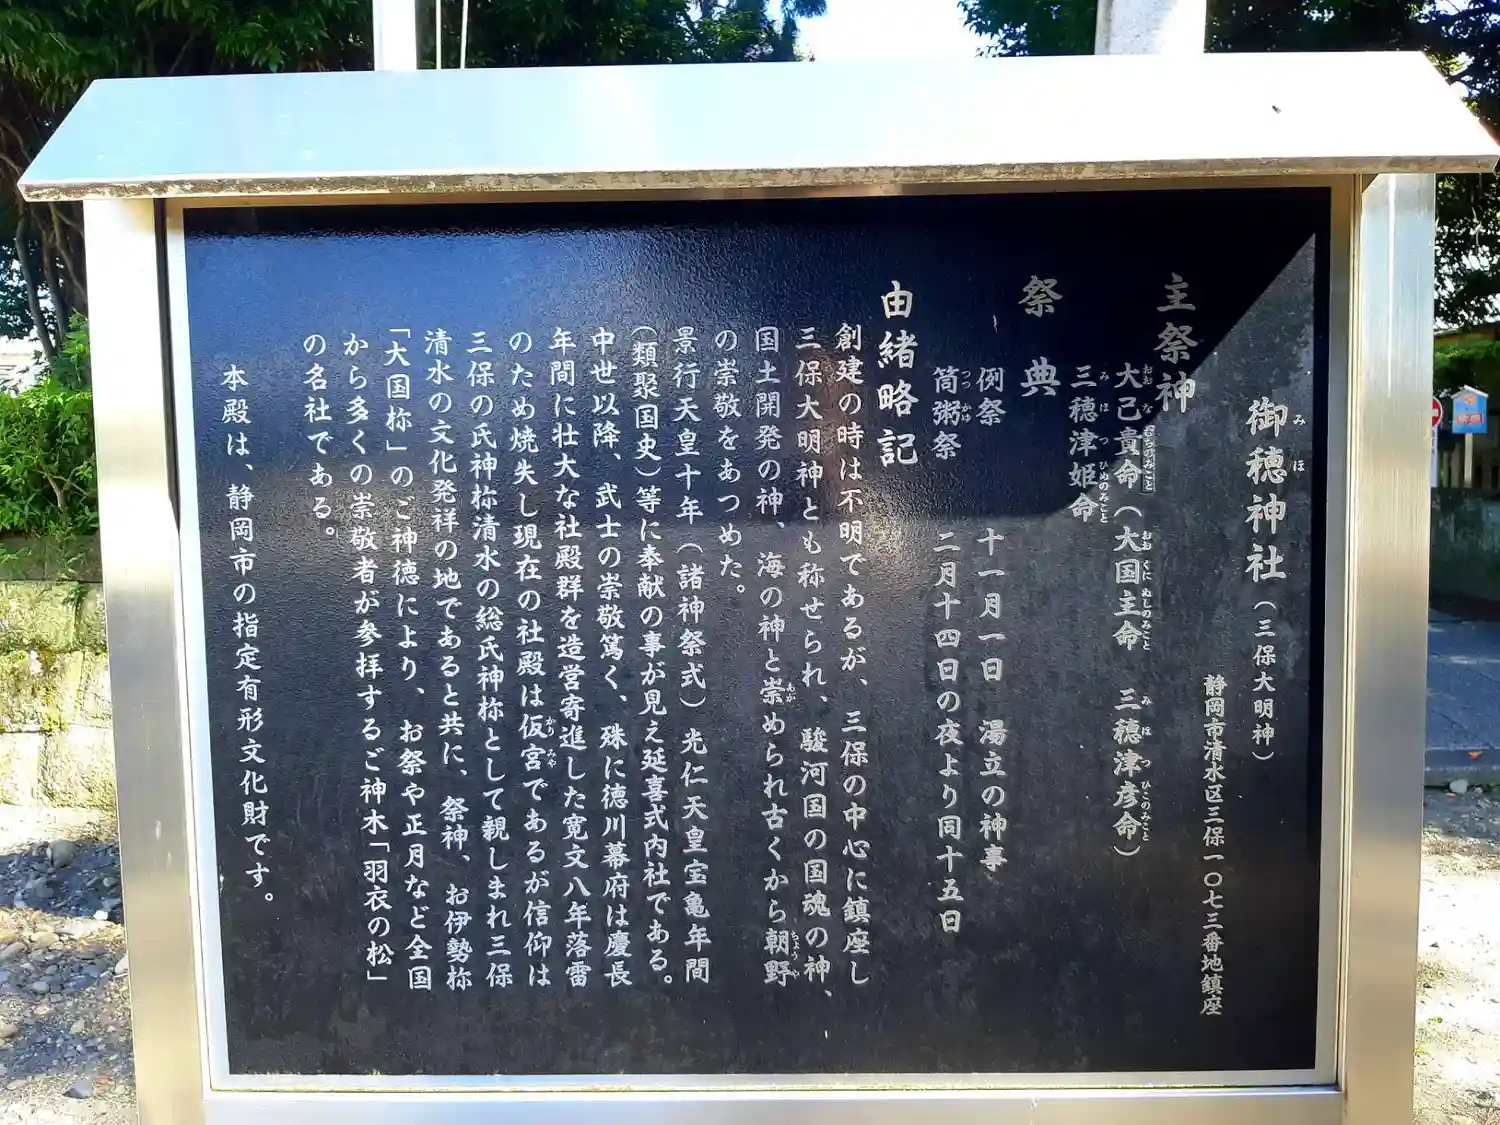 御穂神社（三保大明神）
静岡市清水区三保一〇七三番地鎮座
主祭神
大己貴命（大国主命　三穂津彦命）
三穂津姫命
祭　典
例祭　十一月一日　湯立の神事
筒粥祭　二月十四日の夜より同十五日
由緒略記
創建の時は不明であるが、三保の中心に鎮座し
三保大明神とも称せられ、駿河国の国魂の神、
国土開発の神、海の神と崇められ古くから朝野
の崇敬をあつめた。
景行天皇十年（諸神祭式）光仁天皇宝亀年間
（類聚国史）等に奉献の事が見え延喜式内社である。
中世以降、武士の崇敬篤く、殊に徳川幕府は慶長
年間に壮大な社殿群を造営寄進した寛文八年落雷
のため焼失し現在の社殿は仮宮であるが信仰は
三保の氏神袮清水の総氏神袮として親しまれ三保
清水の文化発祥の地であると共に、祭神、お伊勢袮
「大国袮」のご神徳により、お祭や正月など全国
から多くの崇敬者が参拝するご神木「羽衣の松」
の名社である。
本殿は、静岡市の指定有形文化財です。